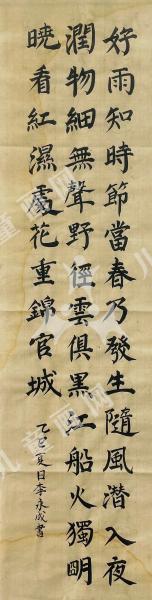 好雨知時節當春乃發生隨風潛入夜
潤物細無聲野徑雲俱黑江船火獨明
曉看紅濕處花重錦官城
乙巳夏日李永成書